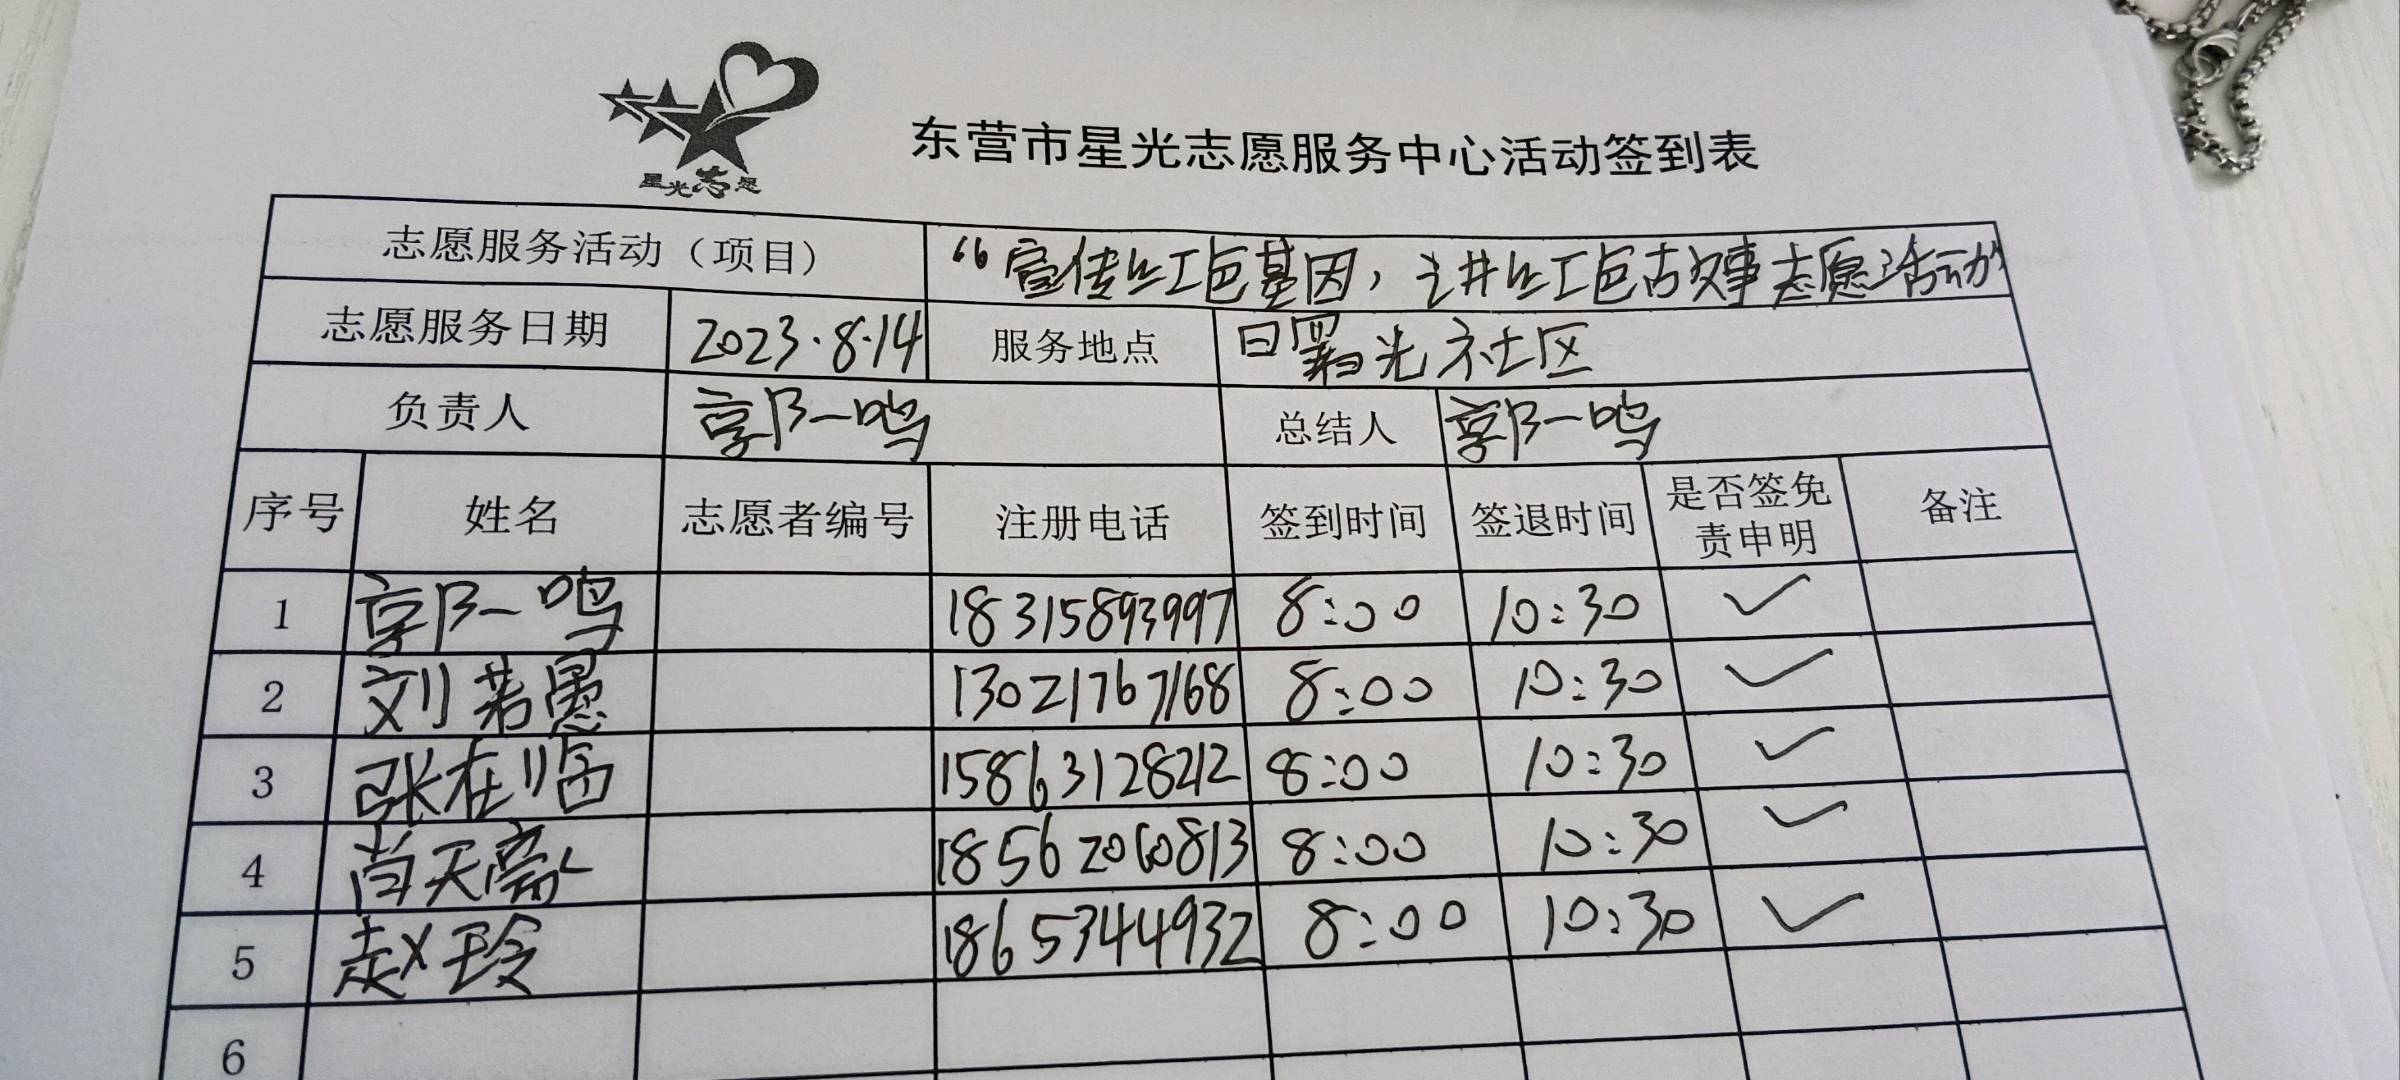 星光志愿
东营市星光志愿服务中心活动签到表
志愿服务活动（项目） “宣传红色基因，讲红色故事志愿活动”
志愿服务日期 2023.8.14 服务地点 曙光社区
负责人 郭一鸣 总结人 郭一鸣
序号 姓名 志愿者编号 注册电话 签到时间 签退时间 是否签免责申明 备注
1 郭一鸣 18315893997 8:00 10:30 ✓
2 刘若愚 13021767168 8:00 10:30 ✓
3 张在临 15863128212 8:00 10:30 ✓
4 肖天 18562060813 8:00 10:30 ✓
5 赵玲 18653444932 8:00 10:30 ✓
6